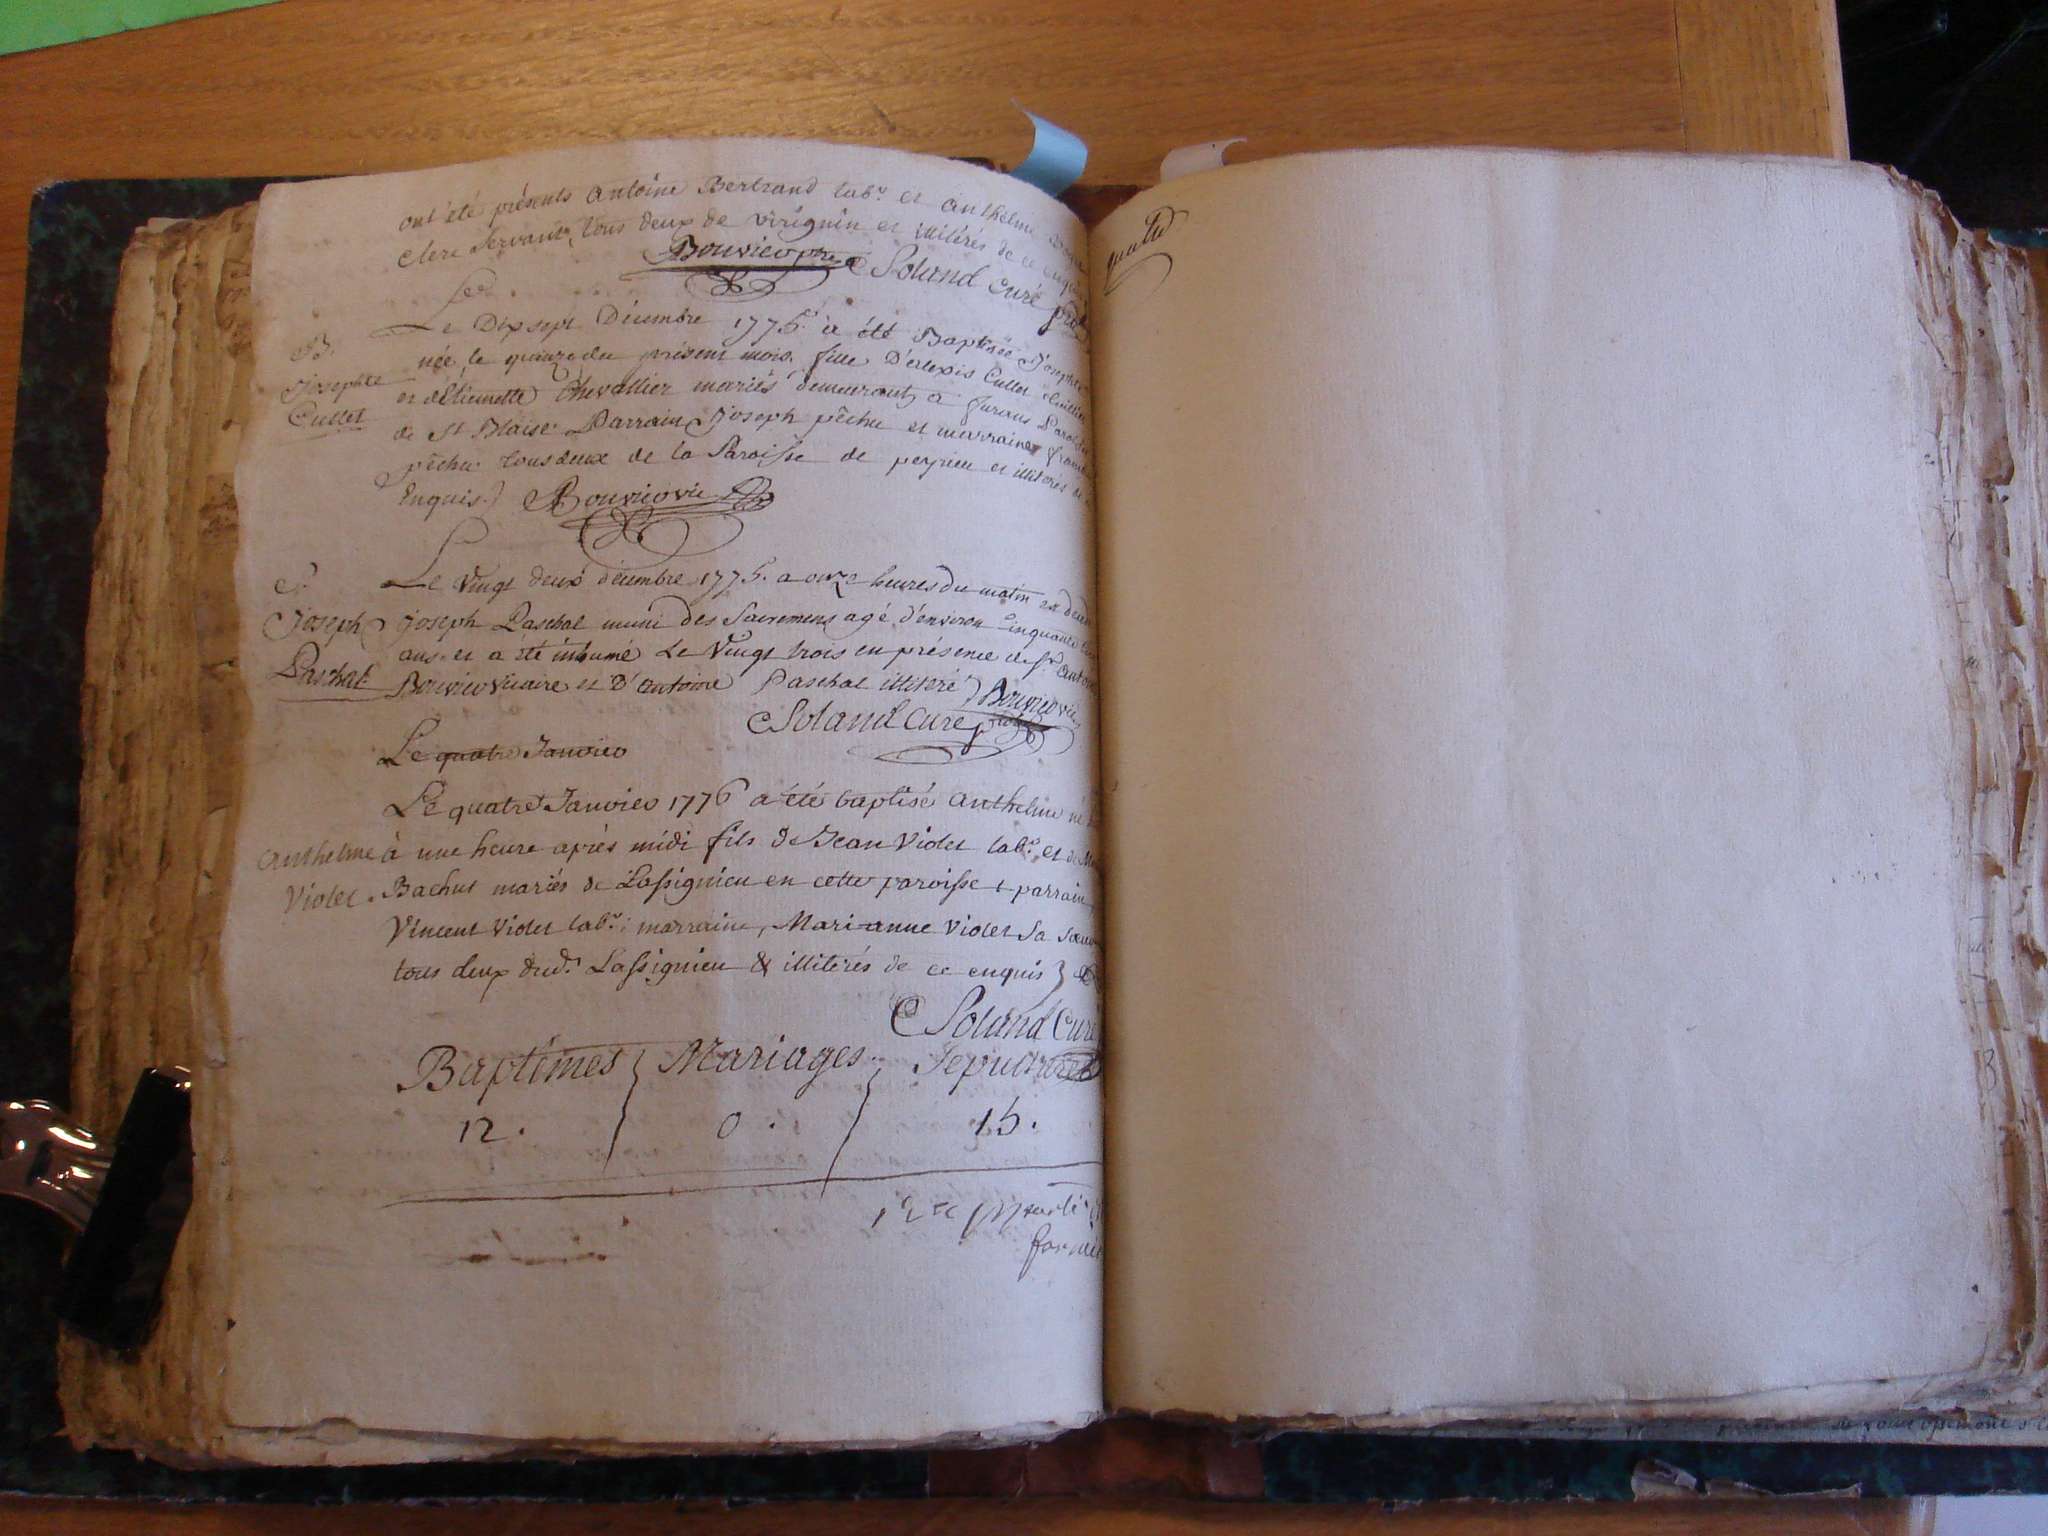 ont été présents antoine Bertrand labr. et anthelme
clerc servant, tous deux de virignin et illitérés de ce enquis
Bouvier ptre Soland Curé
Le
Le Dix sept Décembre 1775. a été Baptisée Josephte
B.
née le quinze du présent mois, fille D'alexis Cullet
Josephte
et d'étiennette Chevallier mariés demeurants a furans
Cullet
de St Blaise. Parrain Joseph pêchu et marraine
pêchu tous deux de la Paroisse de peyrieu et illiterés de
Enquis.) Bouvier vic
Le Vingt deux décembre 1775. a onze heures du matin est
S.
Joseph
joseph Paschal muni des Sacremens agé d'environ cinquante
ans et a été inhumé Le Vingt trois en présence de Sr. antoine
Paschal
Bouvier vicaire et D'antoine Paschal illitéré) Bouvier vic
Soland Curé
Le quatre Janvier
Le quatre Janvier 1776 a été baptisé anthelme né
anthelme
à une heure après midi fils de Jean Violet labr. et de
Violet.
Bachut mariés de Lassignieu en cette paroisse, parrain,
Vincent Violet labr.; marraine, Marianne Violet sa soeur
tous deux dud. Lassignieu & illitérés de ce enquis
Soland Curé
Baptêmes Mariages Sepultures
12. 0. 15.
quatre